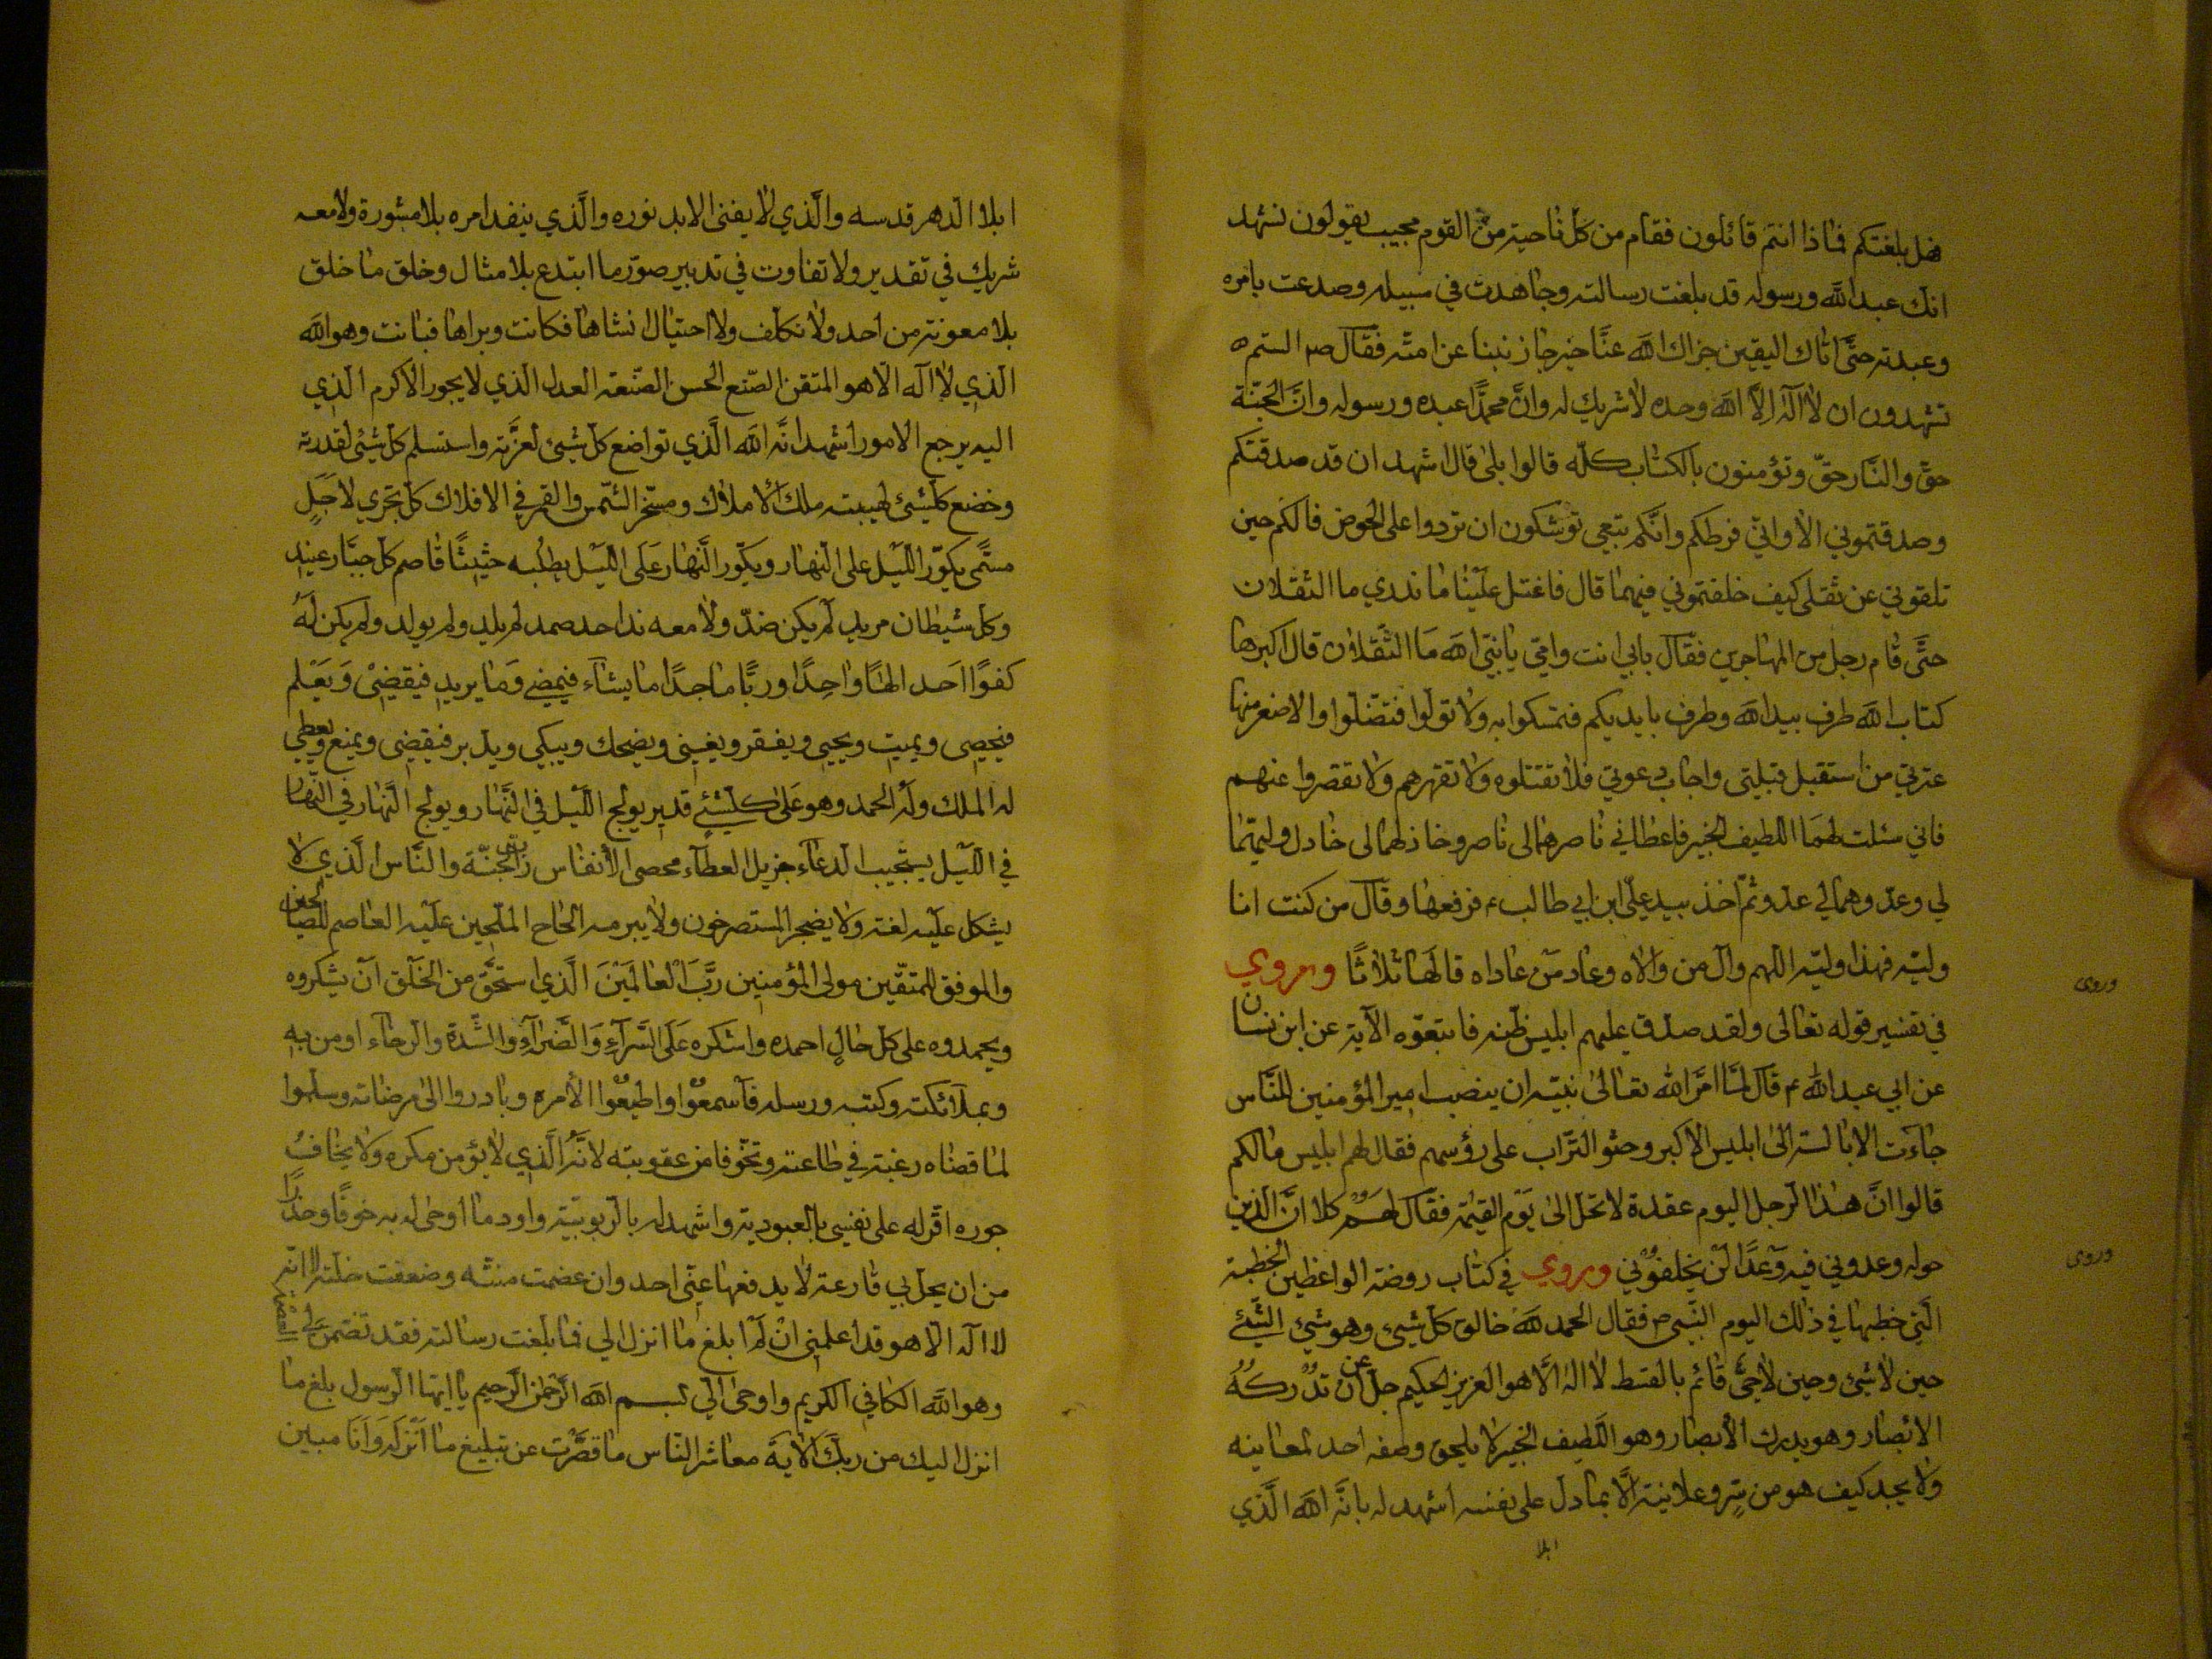 هل بلغتكم فماذا انتم قائلون فقام من كل ناحية من القوم مجيب يقولون نشهد
انك عبدالله ورسوله قد بلغت رسالته وجاهدت في سبيله وصدعت بامره
وعبدته حتى اتاك اليقين جزاك الله عنا خير ما جاز نبينا عن امته فقال ص الستم
تشهدون ان لا اله الا الله وحده لا شريك له وان محمدا عبده ورسوله وان الجنة
حق والنار حق وتؤمنون بالكتاب كله قالوا بلى قال اشهد ان قد صدقتكم
وصدقتموني الا واني فرطكم وانكم تبعي توشكون ان تردوا على الحوض فاسالكم حين
تلقوني عن ثقلي كيف خلفتموني فيهما قال فاعتل علينا ما ندري ما الثقلان
حتى قام رجل من المهاجرين فقال بابي انت وامي يا نبي الله ما الثقلان قال اكبرها
كتاب الله طرف بيد الله وطرف بايديكم فتمسكوا به ولا تولوا فتضلوا والاصغر منها
عترتي من استقبل قبلتي واجاب دعوتي فلا تقتلوه ولا تقهرهم ولا تقصروا عنهم
فاني سئلت لهما اللطيف الخبير فاعطاني ناصرهما لي ناصر وخاذلهما لي خاذل ووليهما
لي وعدوهما لي عدو ثم اخذ بيد علي ابن ابي طالب ع فرفعها وقال من كنت انا
وليه فهذا وليه اللهم وال من والاه وعاد من عاداه قالها ثلاثا وروي
في تفسير قوله تعالى ولقد صدق عليهم ابليس ظنه فاتبعوه الآية عن ابن سنان
عن ابي عبد الله ع قال لما امر الله تعالى نبيه ان ينصب امير المؤمنين للناس
جاءت الابالسة الى ابليس الاكبر وحثو التراب على رؤسهم فقال لهم ابليس مالكم
قالوا ان هذا الرجل اليوم عقدة لا تحل الى يوم القيمة فقال لهم كلا ان الذين
حوله وعدوني فيه وعدا لن يخلفوني وروي في كتاب روضة الواعظين الخطبة
التي خطبها في ذلك اليوم النبي ص فقال الحمد لله خالق كل شيئ وهو شيئ الشيئ
حين لا شيئ وحين لا حي قائم بالقسط لا اله الا هو العزيز الحكيم جل عن ان تدركه
الابصار وهو يدرك الابصار وهو اللطيف الخبير لا يلحق وصفه احد لمعاينه
ولا يجد كيف هو من سر وعلانية الا بما دل على نفسه اشهد له بانه الله الذي
ابلا
وروى
وروى
ابلا الدهر قدسه والذي لا يفنى الابد نوره والذي ينفد امره بلا مشورة ولا معه
شريك في تقدير ولا تفاوت في تدبير صور ما ابتدع بلا مثال وخلق ما خلق
بلا معونة من احد ولا تكلف ولا احتيال انشاها فكانت وبراها فبانت وهو الله
الذي لا اله الا هو المتقن الصنع الحسن الصنعة العدل الذي لا يجور الاكرم الذي
اليه يرجع الامور اشهد انه الله الذي تواضع كل شيئ لعزته واستسلم كل شيئ لقدرته
وخضع كلشيئ لهيبته ملك الاملاك ومسخر الشمس والقمر في الافلاك كل تجري لاجل
مسمى يكور الليل على النهار ويكور النهار على الليل يطلبه حثيثا قاصم كل جبار عنيد
وكل شيطان مريد لم يكن ضد ولا معه ند احد صمد لم يلد ولم يولد ولم يكن له
كفوا احد الها واحدا وربا ماجدا ما يشاء فيمضي وما يريد فيقضي ويعلم
فيحصي ويميت ويحيي ويفقر ويغني ويضحك ويبكي ويدبر فيقضي ويمنع ويعطي
له الملك وله الحمد وهو على كلشيئ قدير يولج الليل في النهار ويولج النهار في النهار
في الليل يستجيب الدعاء جزيل العطاء محصي الانفاس رب الجنة والناس الذي لا
يشكل عليه لغة ولا يضجر المستصرخون ولا يبرمه الحاح الملحين عليه العاصم للصالحين
والموفق للمتقين مولى المؤمنين رب العالمين الذي استحق من الخلق ان يشكروه
ويحمدوه على كل حال احمده واشكره على السراء والضراء والشدة والرخاء اومن به
وبملائكته وكتبه ورسله فاسمعوا واطيعوا الامره وبادروا الى مرضاته وسلموا
لما قضاه رغبة في طاعته وتخوفا من عقوبته لانه الذي لا يؤمن مكره ولا يخاف
جوره اقر له على نفسي بالعبودية واشهد له بالربوبية واود ما اوحى له به خوفا وحذرا
من ان يحل بي قارعة لا يدفعها عني احد وان عضمت منته وضعفت خلته لانه
لا اله الا هو قد اعلمني ان لم ابلغ ما انزل الي فما بلغت رسالته فقد تضمن لي العصمة
وهو الله الكافي الكريم واوحى الي بسم الله الرحمن الرحيم يا ايها الرسول بلغ ما
انزل اليك من ربك الاية معاشر الناس ما قصرت عن تبليغ ما انزله وانا مبين